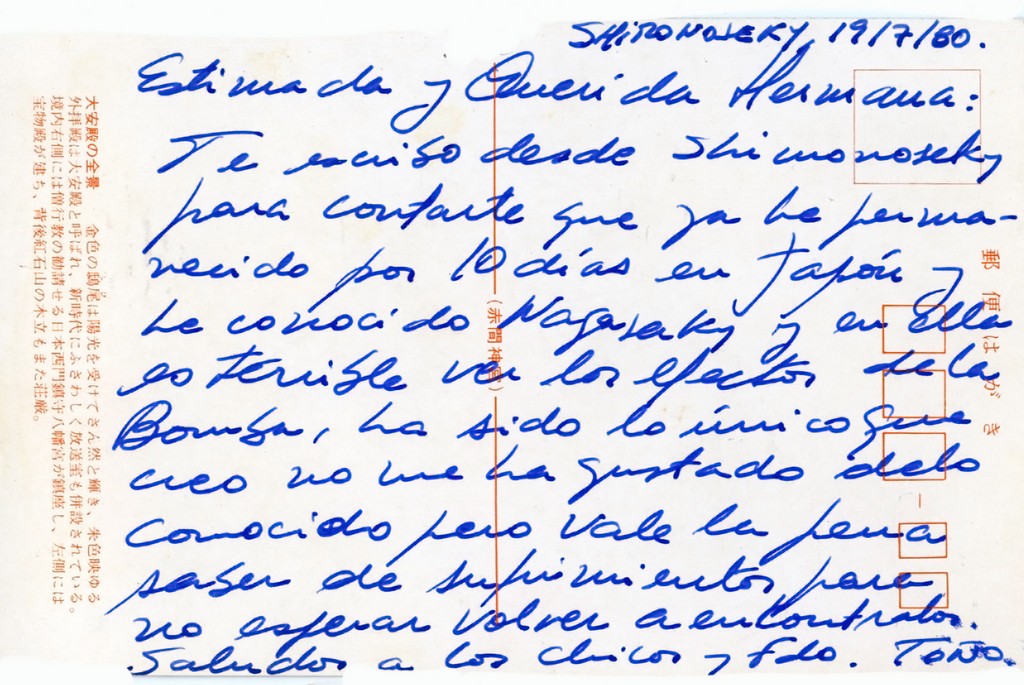 SHIRONOSEKY, 19/7/80.
Estimada y Querida Hermana:
Te escribo desde Shimonoseky
para contarte que ya he perma-
necido por 10 días en Japón y
he conocido Nagasaky y en Ella
es terrible ver los efectos de la
Bomba, ha sido lo único que
creo no me ha gustado delo
conocido pero vale la pena
saber de sufrimientos para
no esperar volver a encontrarlos.
Saludos a los chicos y Fdo. TOÑO.
大安殿の全景 金色の鴟尾は陽光を受けてさん然と輝き、朱色映ゆる
外拝殿は大安殿と呼ばれ、新時代にふさわしく放送室も併設されている。
境内右側には僧行教の勧請せる日本西門鎮守八幡宮が鎮座し、左側には
宝物殿が建ち、背後紅石山の木立もまた荘厳。
(赤間神宮)
郵便はがき